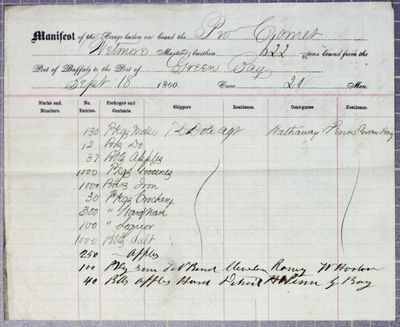 Manifest of the Cargo laden on board the Pro Comet
Master, burthen 622 tons bound from the
Port of Buffalo to the Port of Green Bay
Sept 18 1860. Crew 21 Men
Marks and Numbers. No. Entries. Packages and Contents. Shippers Residence. Consignees Residence.
130 Pkgs Mdse T D Dole agt Hathaway & Penn Green Bay
12 Do
37 Bbls Apples
1000 Pkgs Groceries
1000 Bars Iron
30 Pkgs Crockery
300 " Hardware
100 " Liquor
1000 Bbls Salt
250 " Apples
100 Pkgs Cleveland
40 Bbls Apples Hurd Detroit G Bay